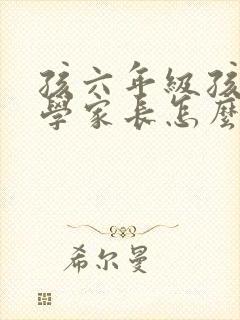 孩六年級孩
學家長怎麼
希尔曼